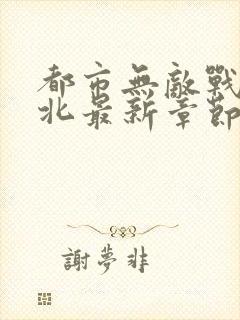 都市無敵戰
北最新章節
謝夢非